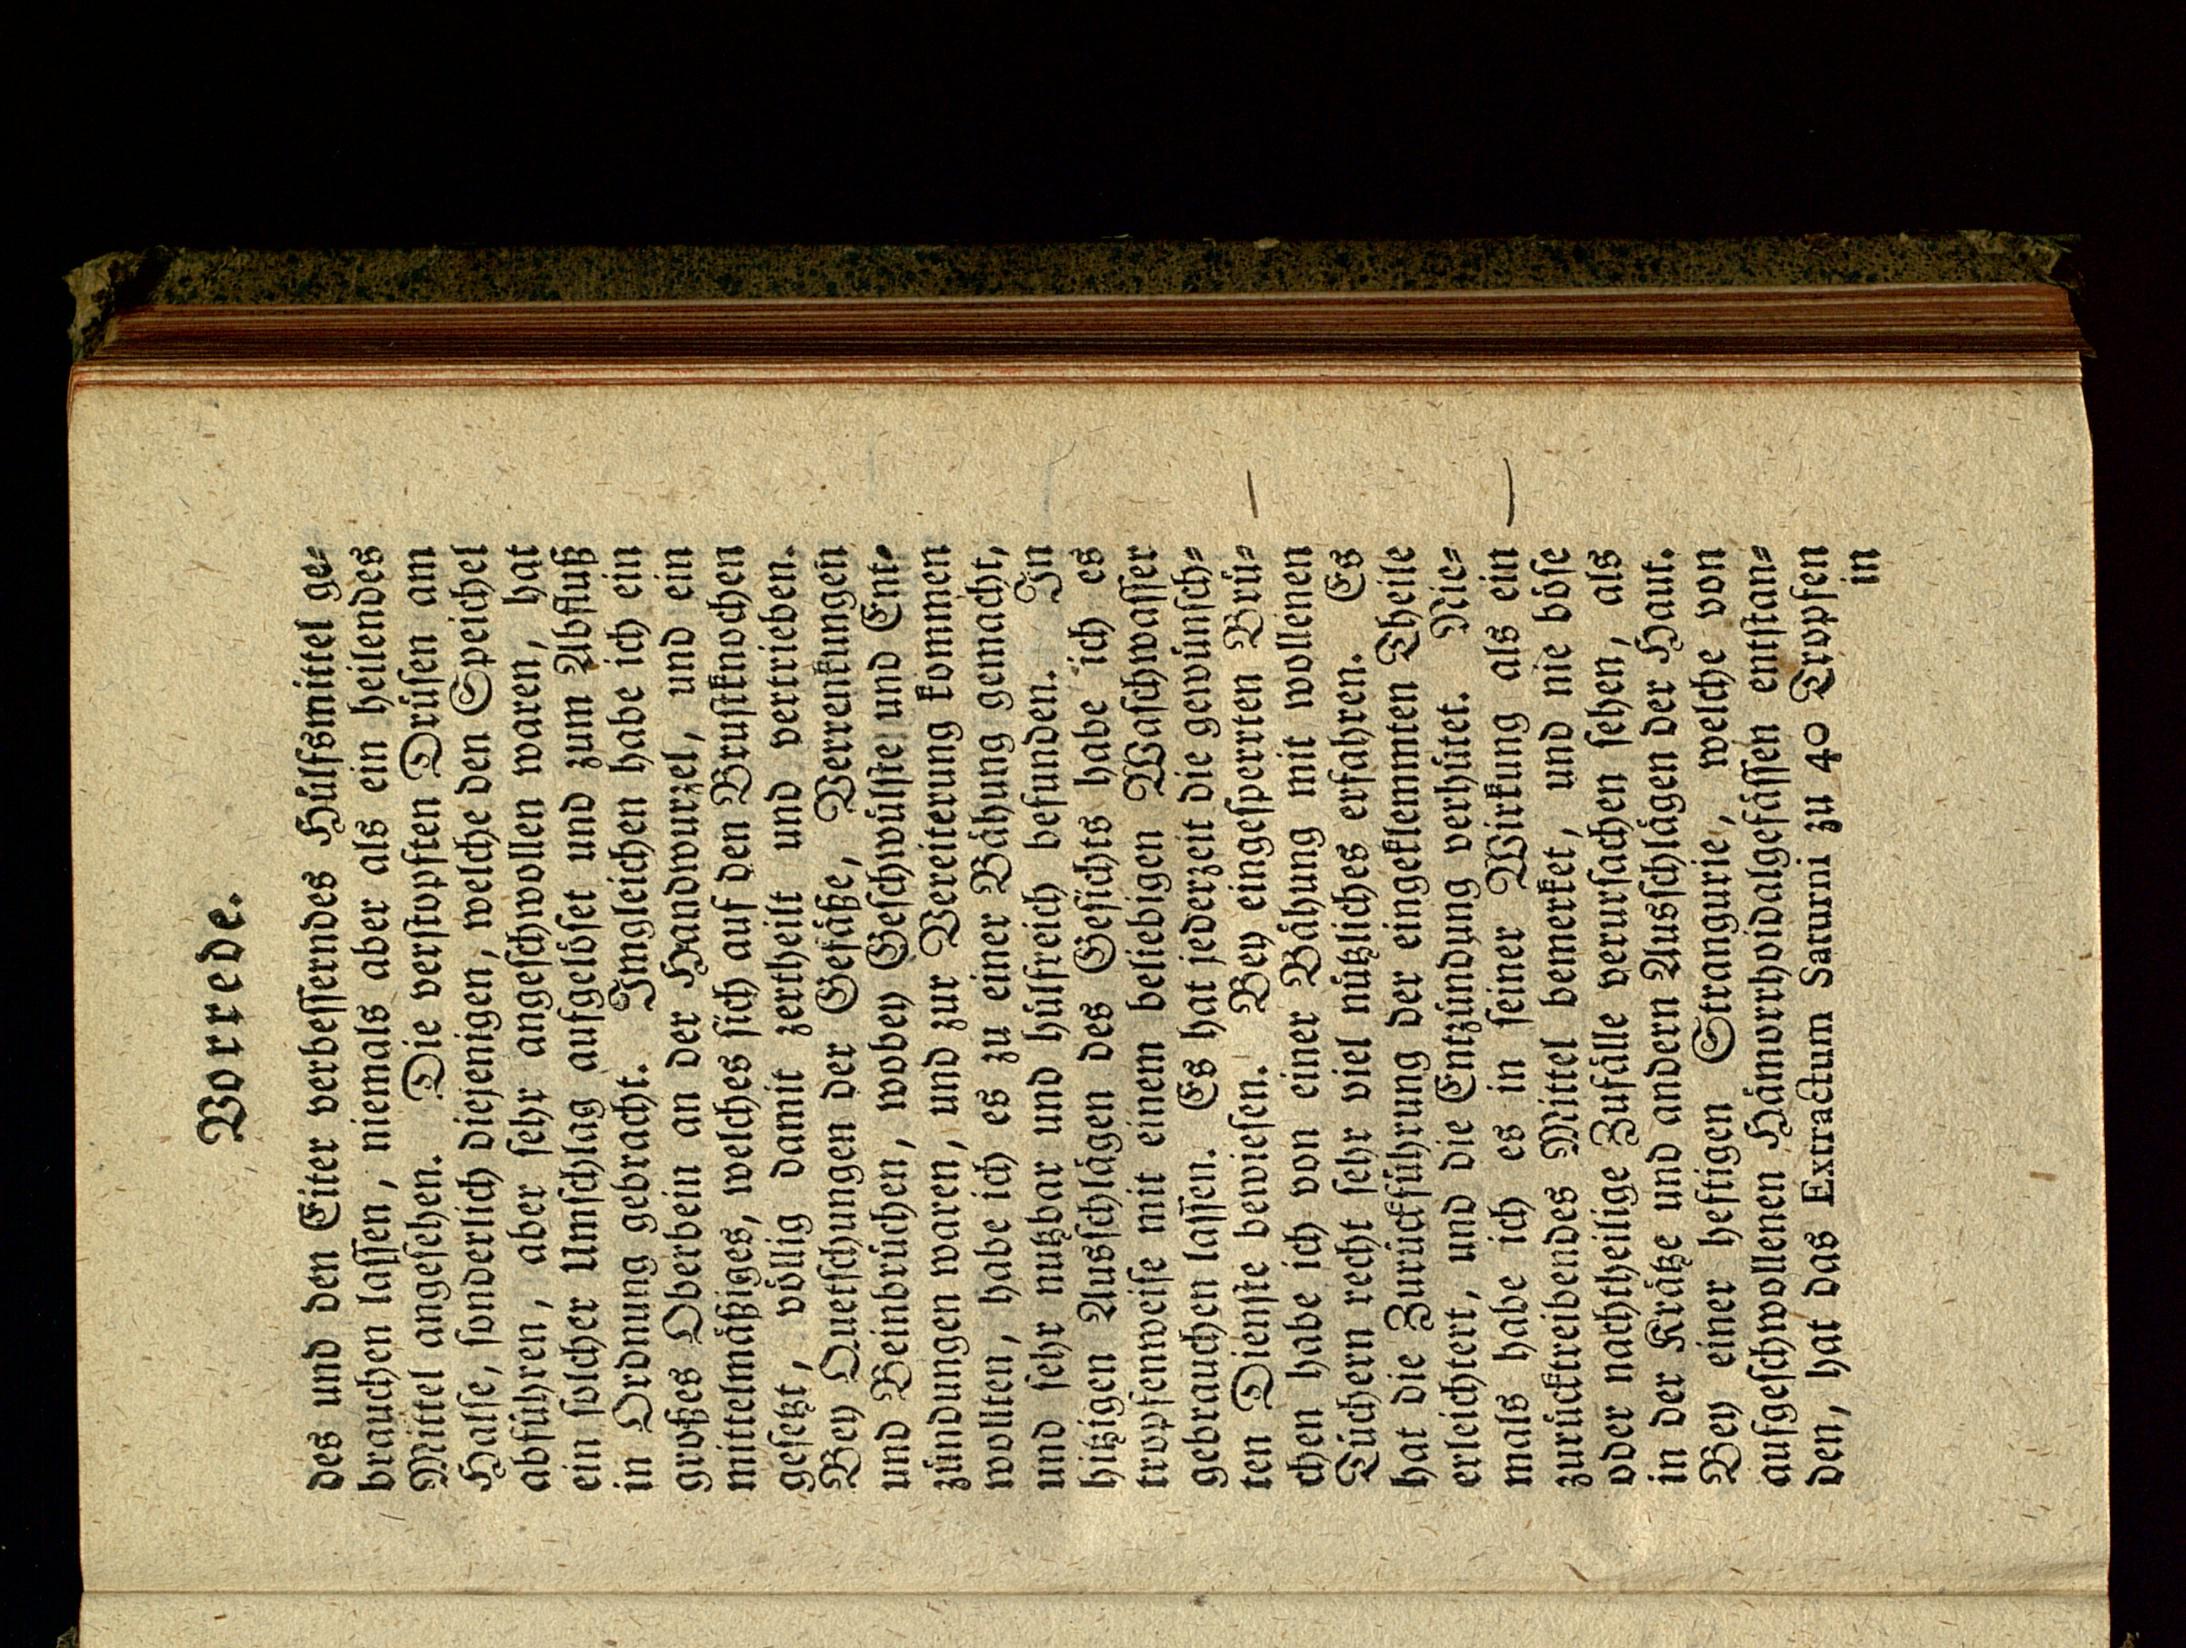 Vorrede.
des und den Eiter verbesserndes Hülfsmittel ge-
brauchen lassen, niemals aber als ein heilendes
Mittel angesehen. Die verstopften Drüsen am
Halse, sonderlich diejenigen, welche den Speichel
abführen, aber sehr angeschwollen waren, hat
ein solcher Umschlag aufgelöset und zum Abfluß
in Ordnung gebracht. Imgleichen habe ich ein
großes Oberbein an der Handwurzel, und ein
mittelmäßiges, welches sich auf den Brustknochen
gesetzt, völlig damit zertheilt und vertrieben.
Bey Quetschungen der Gefäße, Verrenkungen
und Beinbrüchen, wobey Geschwülste und Ent-
zündungen waren, und zur Vereiterung kommen
wollten, habe ich es zu einer Bähung gemacht,
und sehr nutzbar und hülfreich befunden. In
hitzigen Ausschlägen des Gesichts habe ich es
tropfenweise mit einem beliebigen Waschwasser
gebrauchen lassen. Es hat jederzeit die gewünsch-
ten Dienste bewiesen. Bey eingesperrten Brü-
chen habe ich von einer Bähung mit wollenen
Tüchern recht sehr viel nützliches erfahren. Es
hat die Zurückführung der eingeklemmten Theile
erleichtert, und die Entzündung verhütet. Nie-
mals habe ich es in seiner Wirkung als ein
zurücktreibendes Mittel bemerket, und nie böse
oder nachtheilige Zufälle verursachen sehen, als
in der Krätze und andern Ausschlägen der Haut.
Bey einer heftigen Strangurie, welche von
aufgeschwollenen Hämorrhoidalgefässen entstan-
den, hat das Extractum Saturni zu 40 Tropfen
in